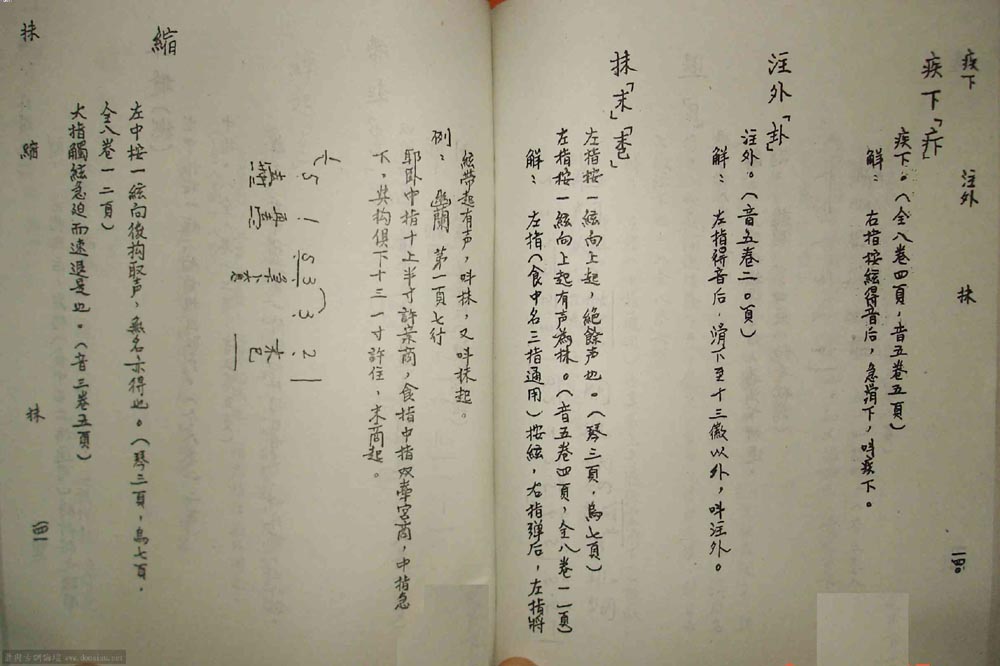 疾下 注外 抹 一四〇
疾下「」
疾下。（全八卷四頁，音五卷五頁）
解： 右指按絃得音后，急滑下，叫疾下。
注外「卦」
注外。（音五卷二〇頁）
解： 左指得音后，滑下至十三徽以外，叫注外。
抹「末」「」
左指按一絃向上起，絕餘声也。（琴三頁，烏七頁）
左指按一絃向上起有声為抹。（音五卷四頁，全八卷一一頁）
解： 左指（食中名三指通用）按絃，右指彈后，左指將
絃帶起有声，叫抹，又叫抹起。
例： 幽蘭 第一頁七行
耶卧中指十上半寸許案商，食指中指双牽宮商，中指急
下，与拘俱下十三一寸許住，末商起。
縮
左中按一絃向後拘取声，無名亦得也。（琴三頁，烏七頁，
全八卷一二頁）
大指觸絃急迫而速退是也。（音三卷五頁）
抹 縮 抹 一四一